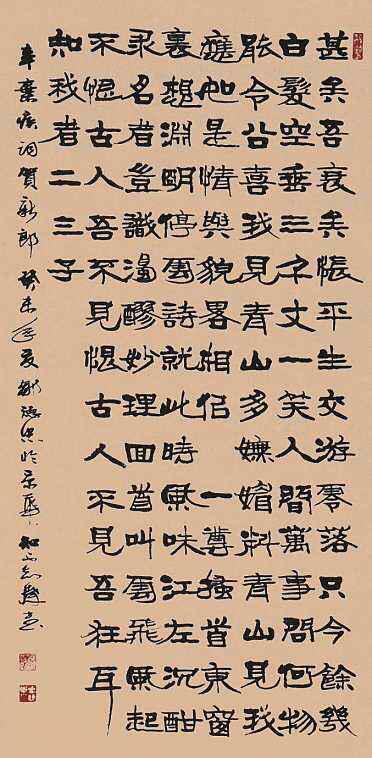 甚矣吾衰矣悵平生交游零落只今餘幾
白髮空垂三千丈一笑人間萬事問何物
能令公喜我見青山多嫵媚料青山見我
應如是情與貌畧相佀一尊搔首東窗
裏想淵明停雲詩就此時風味江左沉酣
求名者豈識濁醪妙理回首叫雲飛風起
不恨古人吾不見恨古人不見吾狂耳
知我者二三子
辛棄疾詞賀新郎 癸未年夏 於京華